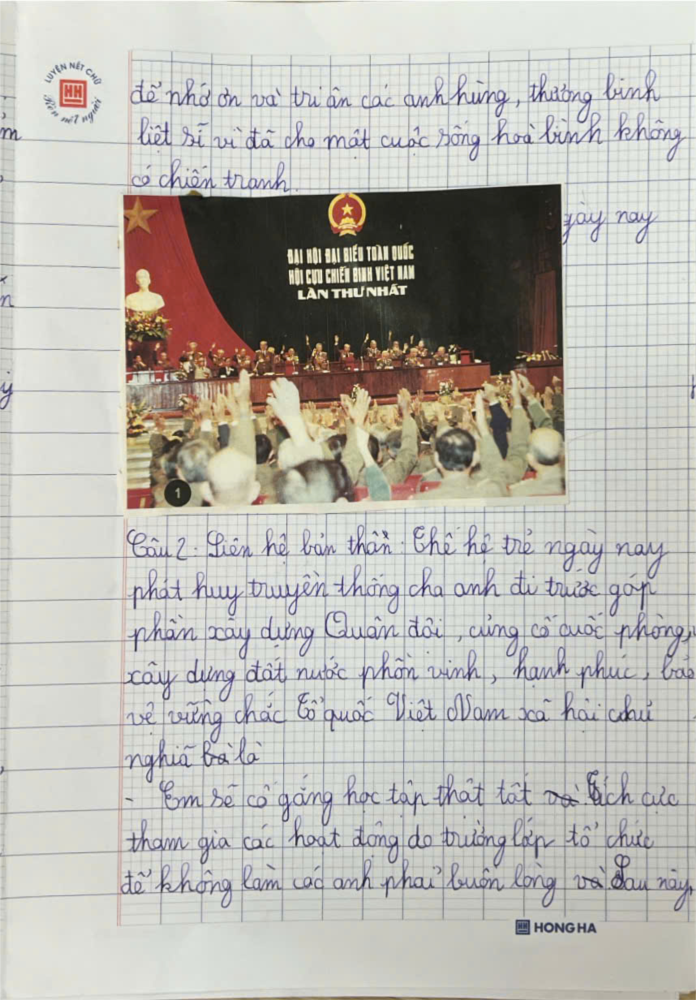 LUYỆN NÉT CHỮ
HH
Rèn nết người
để nhớ ơn và tri ân các anh hùng, thương binh
liệt sĩ vì đã cho một cuộc sống hoà bình không
có chiến tranh.
gày nay
ĐẠI HỘI ĐẠI BIỂU TOÀN QUỐC
HỘI CỰU CHIẾN BINH VIỆT NAM
LẦN THỨ NHẤT
1
Câu 2: Liên hệ bản thân: Thế hệ trẻ ngày nay
phát huy truyền thống cha anh đi trước góp
phần xây dựng Quân đôi, củng cố cuốc phòng,
xây dựng đất nước phồn vinh, hạnh phúc, bảo
vệ vững chắc Tổ quốc Việt Nam xã hội chủ
nghiã là
- Em sẽ cố gắng học tập thật tốt và Tích cực
tham gia các hoạt động do trường lớp tổ chức
để không làm các anh phải buồn lòng và Sau này,
HH HONG HA